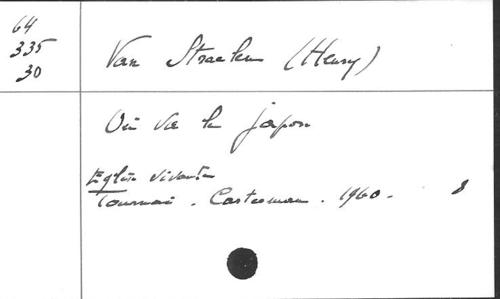 64
335
30
Van Straelen (Henry)
Où va le japon
Eglise vivante
Tournai . Casterman . 1960 . 8